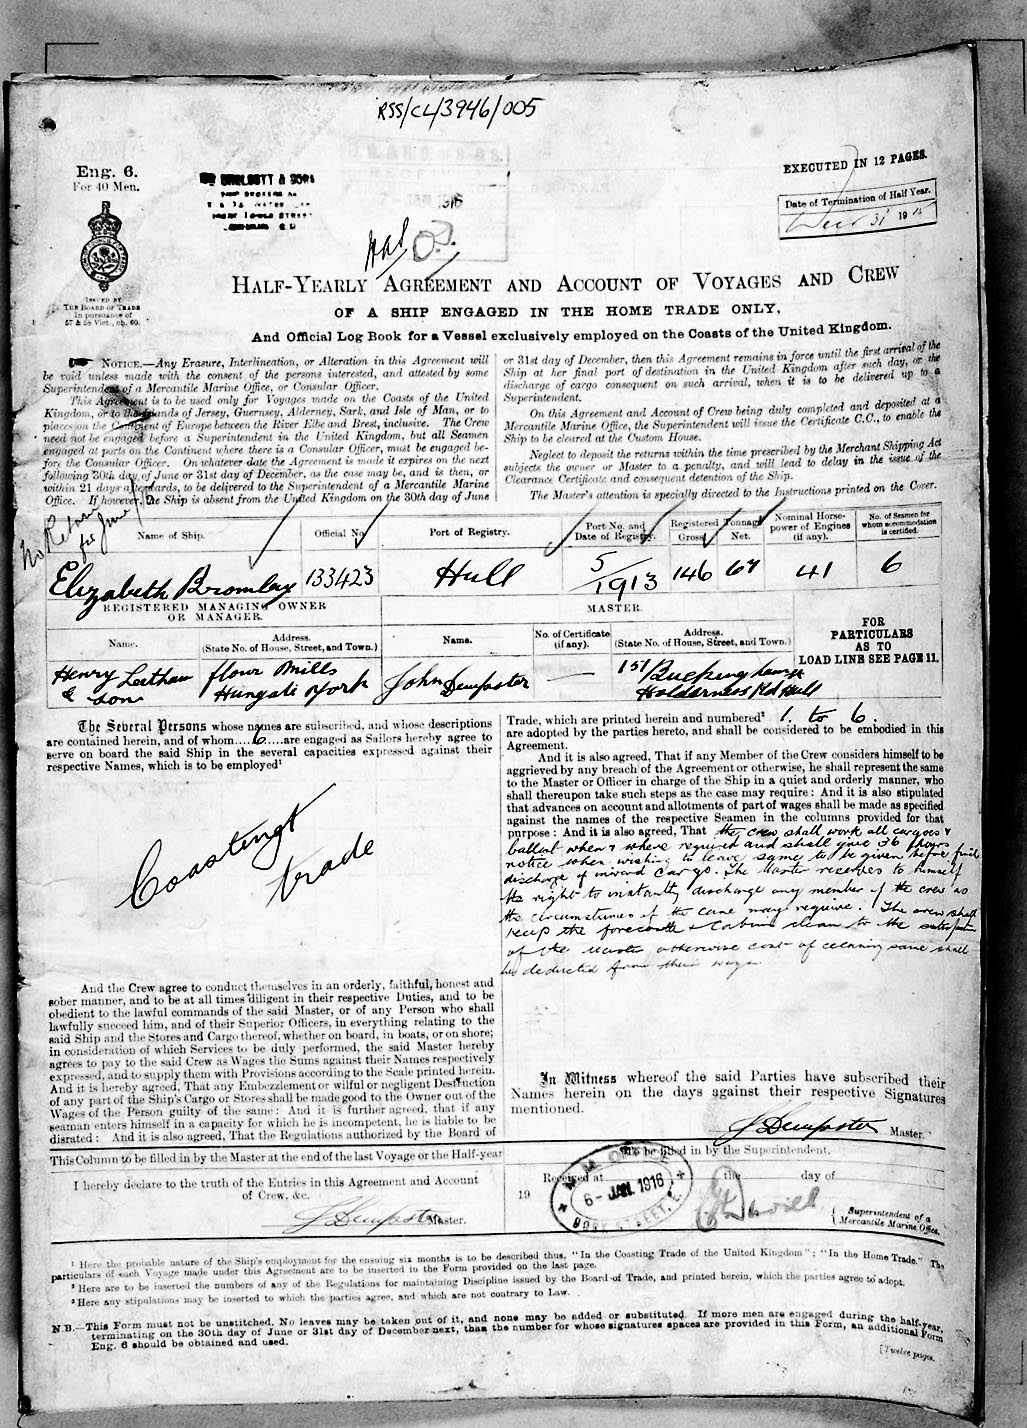 RSS/CL/3946/005
Eng. 6.
For 40 Men.
EXECUTED IN 12 PAGES.
Date of Termination of Half Year.
Dec 31 1915
ISSUED BY
THE BOARD OF TRADE
In pursuance of
57 & 58 Vict., ch. 60.
1916
HALF-YEARLY AGREEMENT AND ACCOUNT OF VOYAGES AND CREW
OF A SHIP ENGAGED IN THE HOME TRADE ONLY,
And Official Log Book for a Vessel exclusively employed on the Coasts of the United Kingdom.
NOTICE.—Any Erasure, Interlineation, or Alteration in this Agreement will
be void unless made with the consent of the persons interested, and attested by some
Superintendent of a Mercantile Marine Office, or Consular Officer.
This Agreement is to be used only for Voyages made on the Coasts of the United
Kingdom, or to the Islands of Jersey, Guernsey, Alderney, Sark, and Isle of Man, or to
places on the Continent of Europe between the River Elbe and Brest, inclusive. The Crew
need not be engaged before a Superintendent in the United Kingdom, but all Seamen
engaged at ports on the Continent where there is a Consular Officer, must be engaged be-
fore the Consular Officer. On whatever date the Agreement is made it expires on the next
following 30th day of June or 31st day of December, as the case may be, and is then, or
within 21 days afterwards, to be delivered to the Superintendent of a Mercantile Marine
Office. If however, the Ship is absent from the United Kingdom on the 30th day of June
or 31st day of December, then this Agreement remains in force until the first arrival of the
Ship at her final port of destination in the United Kingdom after such day, or the
discharge of cargo consequent on such arrival, when it is to be delivered up to a
Superintendent.
On this Agreement and Account of Crew being duly completed and deposited at a
Mercantile Marine Office, the Superintendent will issue the Certificate C.C., to enable the
Ship to be cleared at the Custom House.
Neglect to deposit the returns within the time prescribed by the Merchant Shipping Act
subjects the owner or Master to a penalty, and will lead to delay in the issue of the
Clearance Certificate and consequent detention of the Ship.
The Master's attention is specially directed to the Instructions printed on the Cover.
No Return
for June/15
Name of Ship. Official No. Port of Registry. Port No. and Date of Registry. Registered Tonnage Gross. Net. Nominal Horse-power of Engines (if any). No. of Seamen for whom accommodation is certified.
Elizabeth Bromley 133423 Hull 5/1913 146 67 41 6
REGISTERED MANAGING OWNER
OR MANAGER.
MASTER.
FOR
PARTICULARS
AS TO
LOAD LINE SEE PAGE 11.
Name. Address. (State No. of House, Street, and Town.) Name. No. of Certificate (if any). Address. (State No. of House, Street, and Town.)
Henry Leetham & Son
Flour Mills
Hungate York
John Dempster
—
Holderness Rd Hull
The Several Persons whose names are subscribed, and whose descriptions
are contained herein, and of whom....6....are engaged as Sailors hereby agree to
serve on board the said Ship in the several capacities expressed against their
respective Names, which is to be employed¹
Coasting
trade
And the Crew agree to conduct themselves in an orderly, faithful, honest and
sober manner, and to be at all times diligent in their respective Duties, and to be
obedient to the lawful commands of the said Master, or of any Person who shall
lawfully succeed him, and of their Superior Officers, in everything relating to the
said Ship and the Stores and Cargo thereof, whether on board, in boats, or on shore;
in consideration of which Services to be duly performed, the said Master hereby
agrees to pay to the said Crew as Wages the Sums against their Names respectively
expressed, and to supply them with Provisions according to the Scale printed herein.
And it is hereby agreed, That any Embezzlement or wilful or negligent Destruction
of any part of the Ship's Cargo or Stores shall be made good to the Owner out of the
Wages of the Person guilty of the same: And it is further agreed, that if any
seaman enters himself in a capacity for which he is incompetent, he is liable to be
disrated: And it is also agreed, That the Regulations authorized by the Board of
Trade, which are printed herein and numbered² 1. to 6.
are adopted by the parties hereto, and shall be considered to be embodied in this
Agreement.
And it is also agreed, That if any Member of the Crew considers himself to be
aggrieved by any breach of the Agreement or otherwise, he shall represent the same
to the Master or Officer in charge of the Ship in a quiet and orderly manner, who
shall thereupon take such steps as the case may require: And it is also stipulated
that advances on account and allotments of part of wages shall be made as specified
against the names of the respective Seamen in the columns provided for that
purpose: And it is also agreed, That the crew shall work all cargoes &
ballast when & where required and shall give 36 hours
notice when wishing to leave same to be given before final
discharge of inward cargo. The Master reserves to himself
the right to instantly discharge any member of the crew as
the circumstances of the case may require. The crew shall
keep the forecastle & cabins clean to the satisfaction
of the Master otherwise cost of cleaning same shall
be deducted from their wages.
In Witness whereof the said Parties have subscribed their
Names herein on the days against their respective Signatures
mentioned.
J Dempster Master.
This Column to be filled in by the Master at the end of the last Voyage or the Half-year
I hereby declare to the truth of the Entries in this Agreement and Account
of Crew, &c.
J Dempster Master.
To be filled in by the Superintendent.
Received at the day of
19
M. M. OFFICE
6 - JAN. 1916
DOCK STREET, E.
Superintendent of a
Mercantile Marine Office.
¹ Here the probable nature of the Ship's employment for the ensuing six months is to be described thus, "In the Coasting Trade of the United Kingdom"; "In the Home Trade." The
particulars of each Voyage made under this Agreement are to be inserted in the Form provided on the last page.
² Here are to be inserted the numbers of any of the Regulations for maintaining Discipline issued by the Board of Trade, and printed herein, which the parties agree to adopt.
³ Here any stipulations may be inserted to which the parties agree, and which are not contrary to Law.
N.B.—This Form must not be unstitched. No leaves may be taken out of it, and none may be added or substituted. If more men are engaged during the half-year,
terminating on the 30th day of June or 31st day of December next, than the number for whose signatures spaces are provided in this Form, an additional Form
Eng. 6 should be obtained and used.
[Twelve pages.